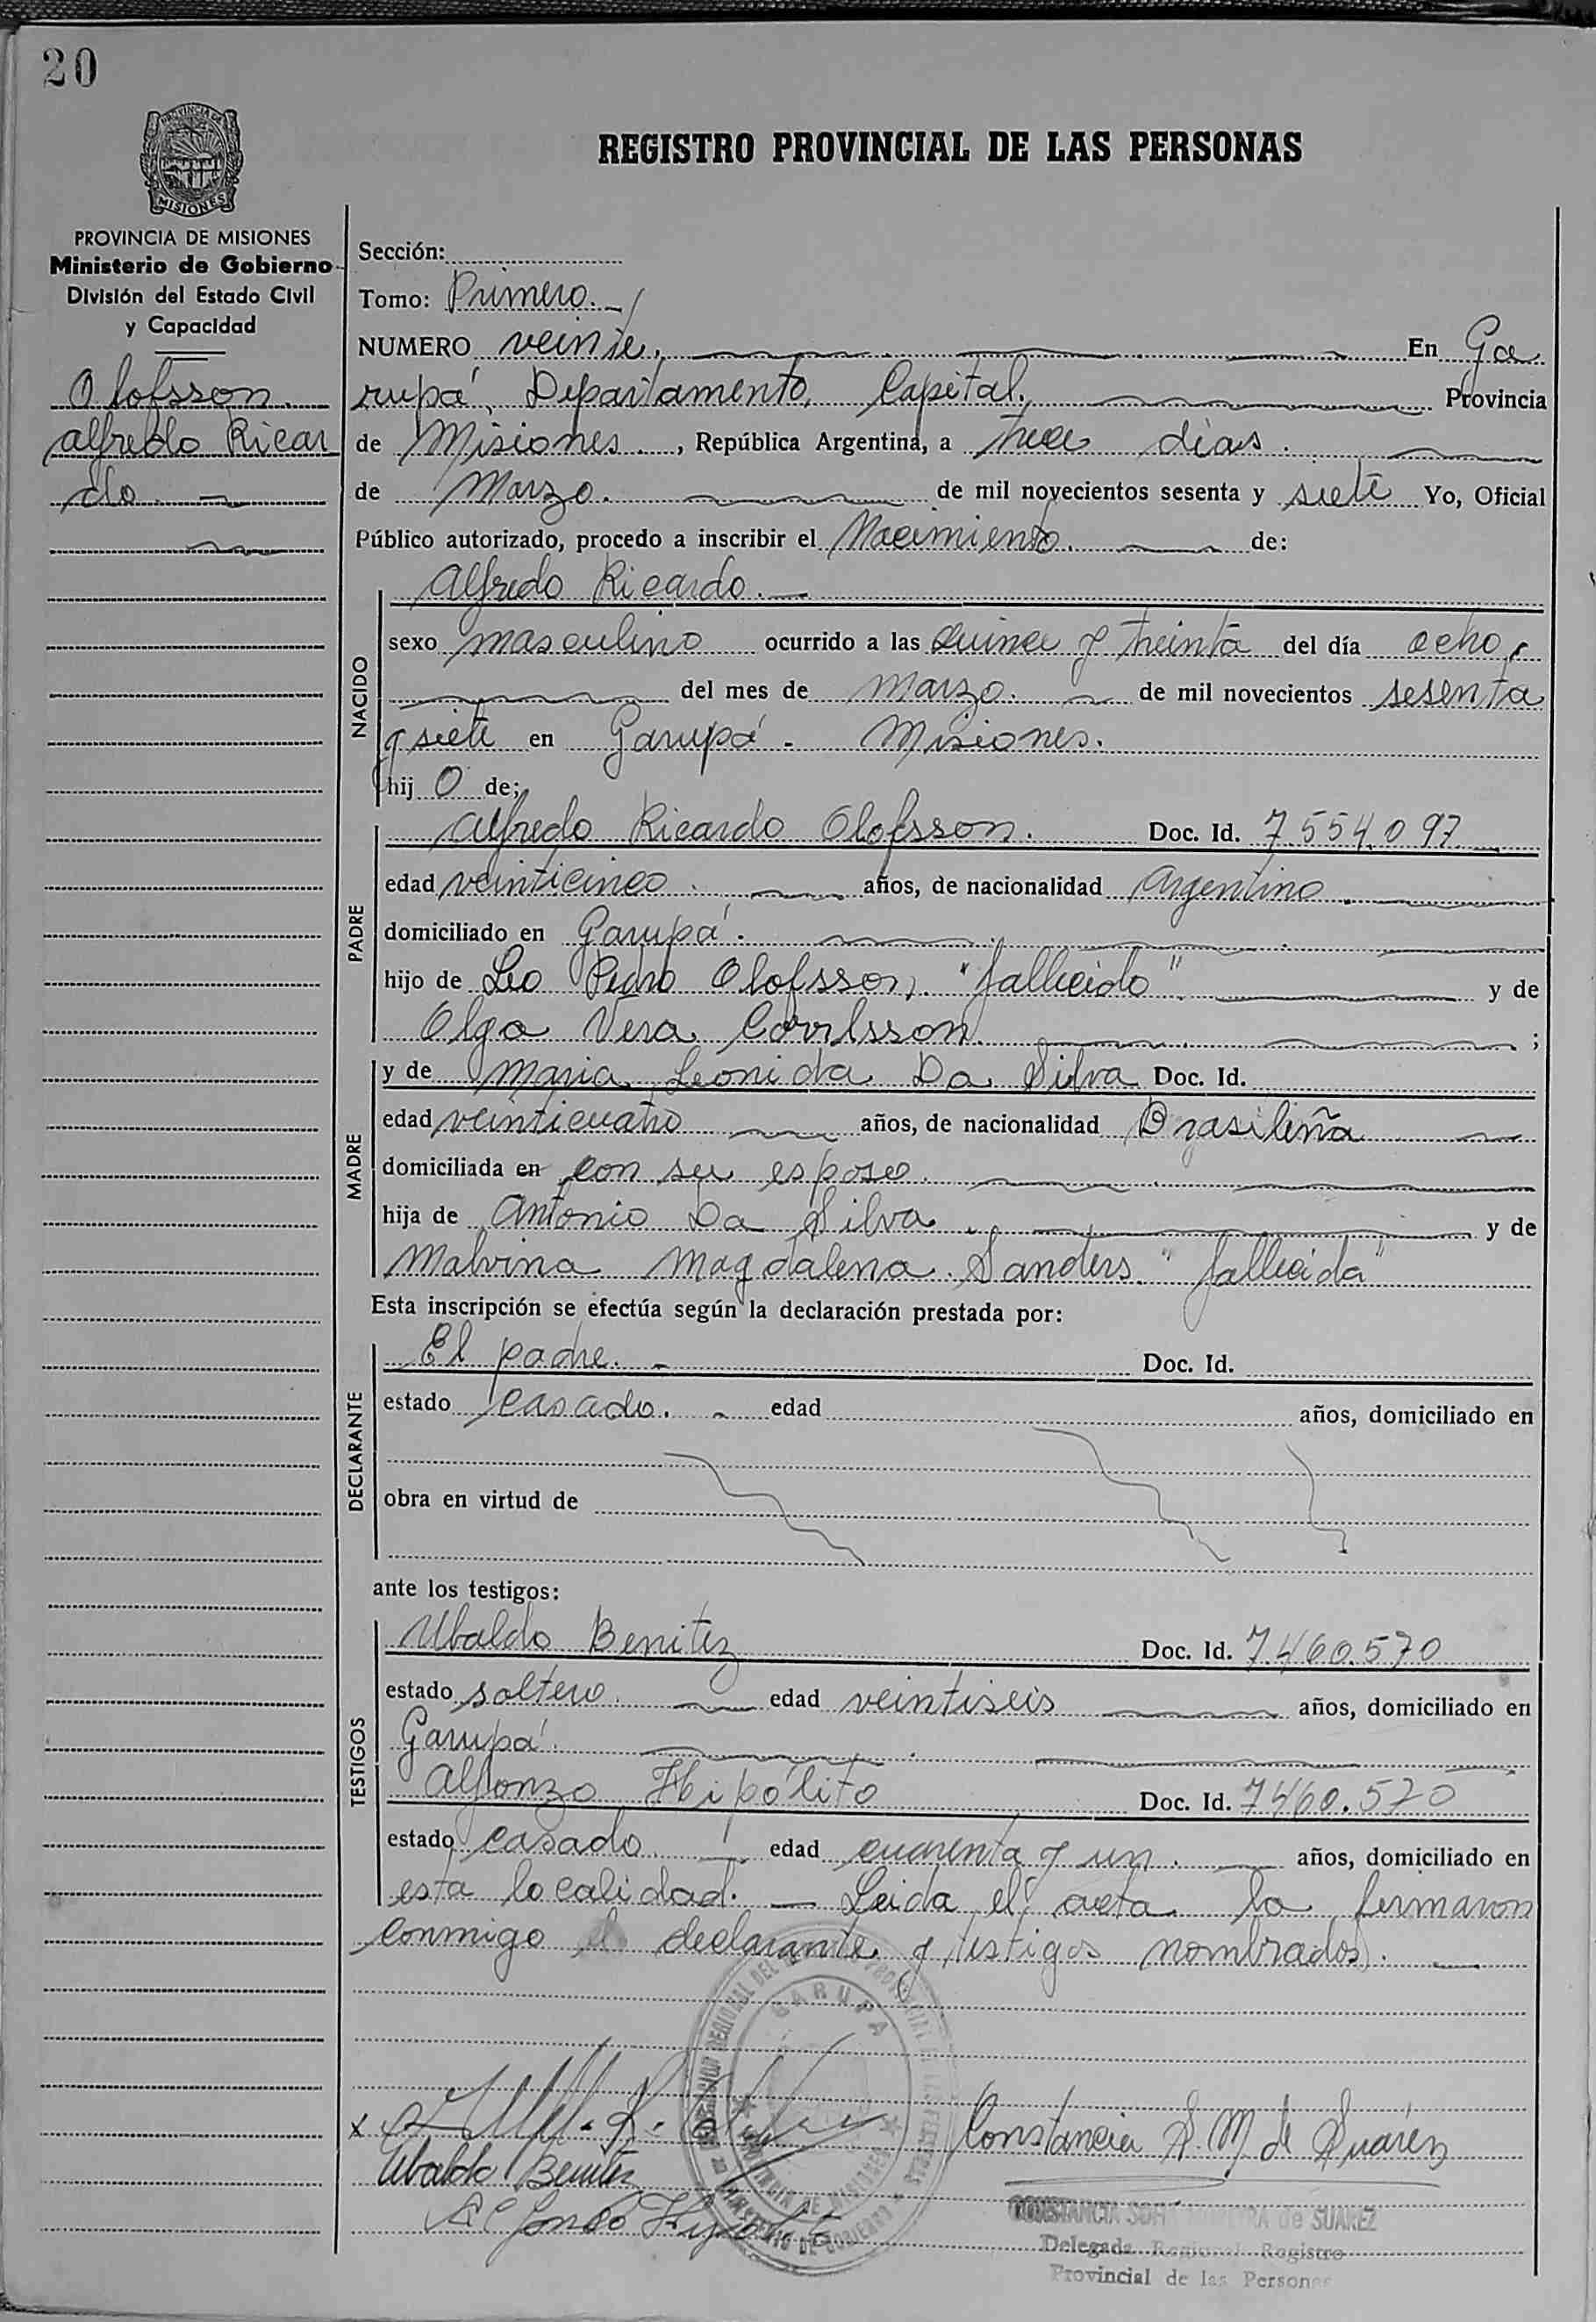 20
PROVINCIA DE
MISIONES
REGISTRO PROVINCIAL DE LAS PERSONAS
PROVINCIA DE MISIONES
Ministerio de Gobierno
División del Estado Civil
y Capacidad
Olofsson.
Alfredo Ricar
do. —
Sección:
Tomo: Primero.
NUMERO veinte. En Ga
rupá, Departamento, Capital. Provincia
de Misiones., República Argentina, a trece días.
de Marzo. de mil novecientos sesenta y siete Yo, Oficial
Público autorizado, procedo a inscribir el Nacimiento. de:
NACIDO
Alfredo Ricardo. —
sexo masculino ocurrido a las quince y treinta del día ocho,
del mes de marzo. de mil novecientos sesenta
y siete en Garupá - Misiones.
hij o de;
PADRE
Alfredo Ricardo Olofsson. Doc. Id. 7.554.097
edad veinticinco. años, de nacionalidad Argentino.
domiciliado en Garupá.
hijo de Leo Pedro Olofsson, "fallecido" y de
Olga Vera ;
MADRE
y de Maria Leonida Da Silva Doc. Id.
edad veinticuatro años, de nacionalidad Brasileña
domiciliada en con su esposo.
hija de Antonio Da Silva. y de
Malvina Magdalena Sanders. "fallecida"
Esta inscripción se efectúa según la declaración prestada por:
DECLARANTE
El padre. - Doc. Id.
estado casado. - edad años, domiciliado en
obra en virtud de
ante los testigos:
TESTIGOS
Ubaldo Benitez Doc. Id. 7.460.570
estado soltero. edad veintiseis años, domiciliado en
Garupá.
Alfonzo Hipólito Doc. Id. 7460.570
estado casado. edad cuarenta y un. años, domiciliado en
esta localidad. — Leida el acta la firmaron
conmigo el declarante y testigos nombrados. —
GARUPA
PROVINCIA DE MISIONES
MINISTERIO DE GOBIERNO
x
Ubaldo Benitez
Alfonso Hipolito
Constancia S. M de Suárez
CONSTANCIA de SUAREZ
Delegada Regional Registro
Provincial de las Personas